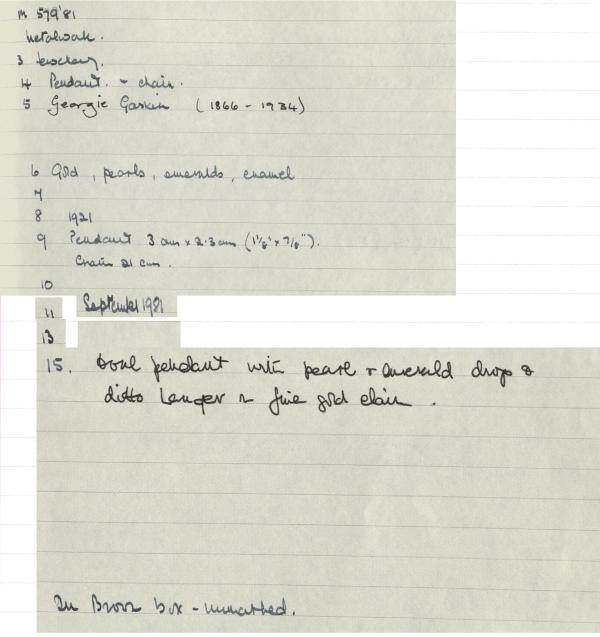 M 579'81
Metalwork.
3 Jewellery.
4 Pendant. & chain.
5 Georgie Gaskin (1866 - 1934)
6 Gold, pearls, emeralds, enamel
7
8 1921
9 Pendant 3 cm x 2.3 cm (1 1/8" x 7/8").
Chain 21 cm.
10
11 September 1981
13
15. Oval pendant with pearl & emerald drop &
ditto hanger & fine gold chain.
In Brown box - unmarked.